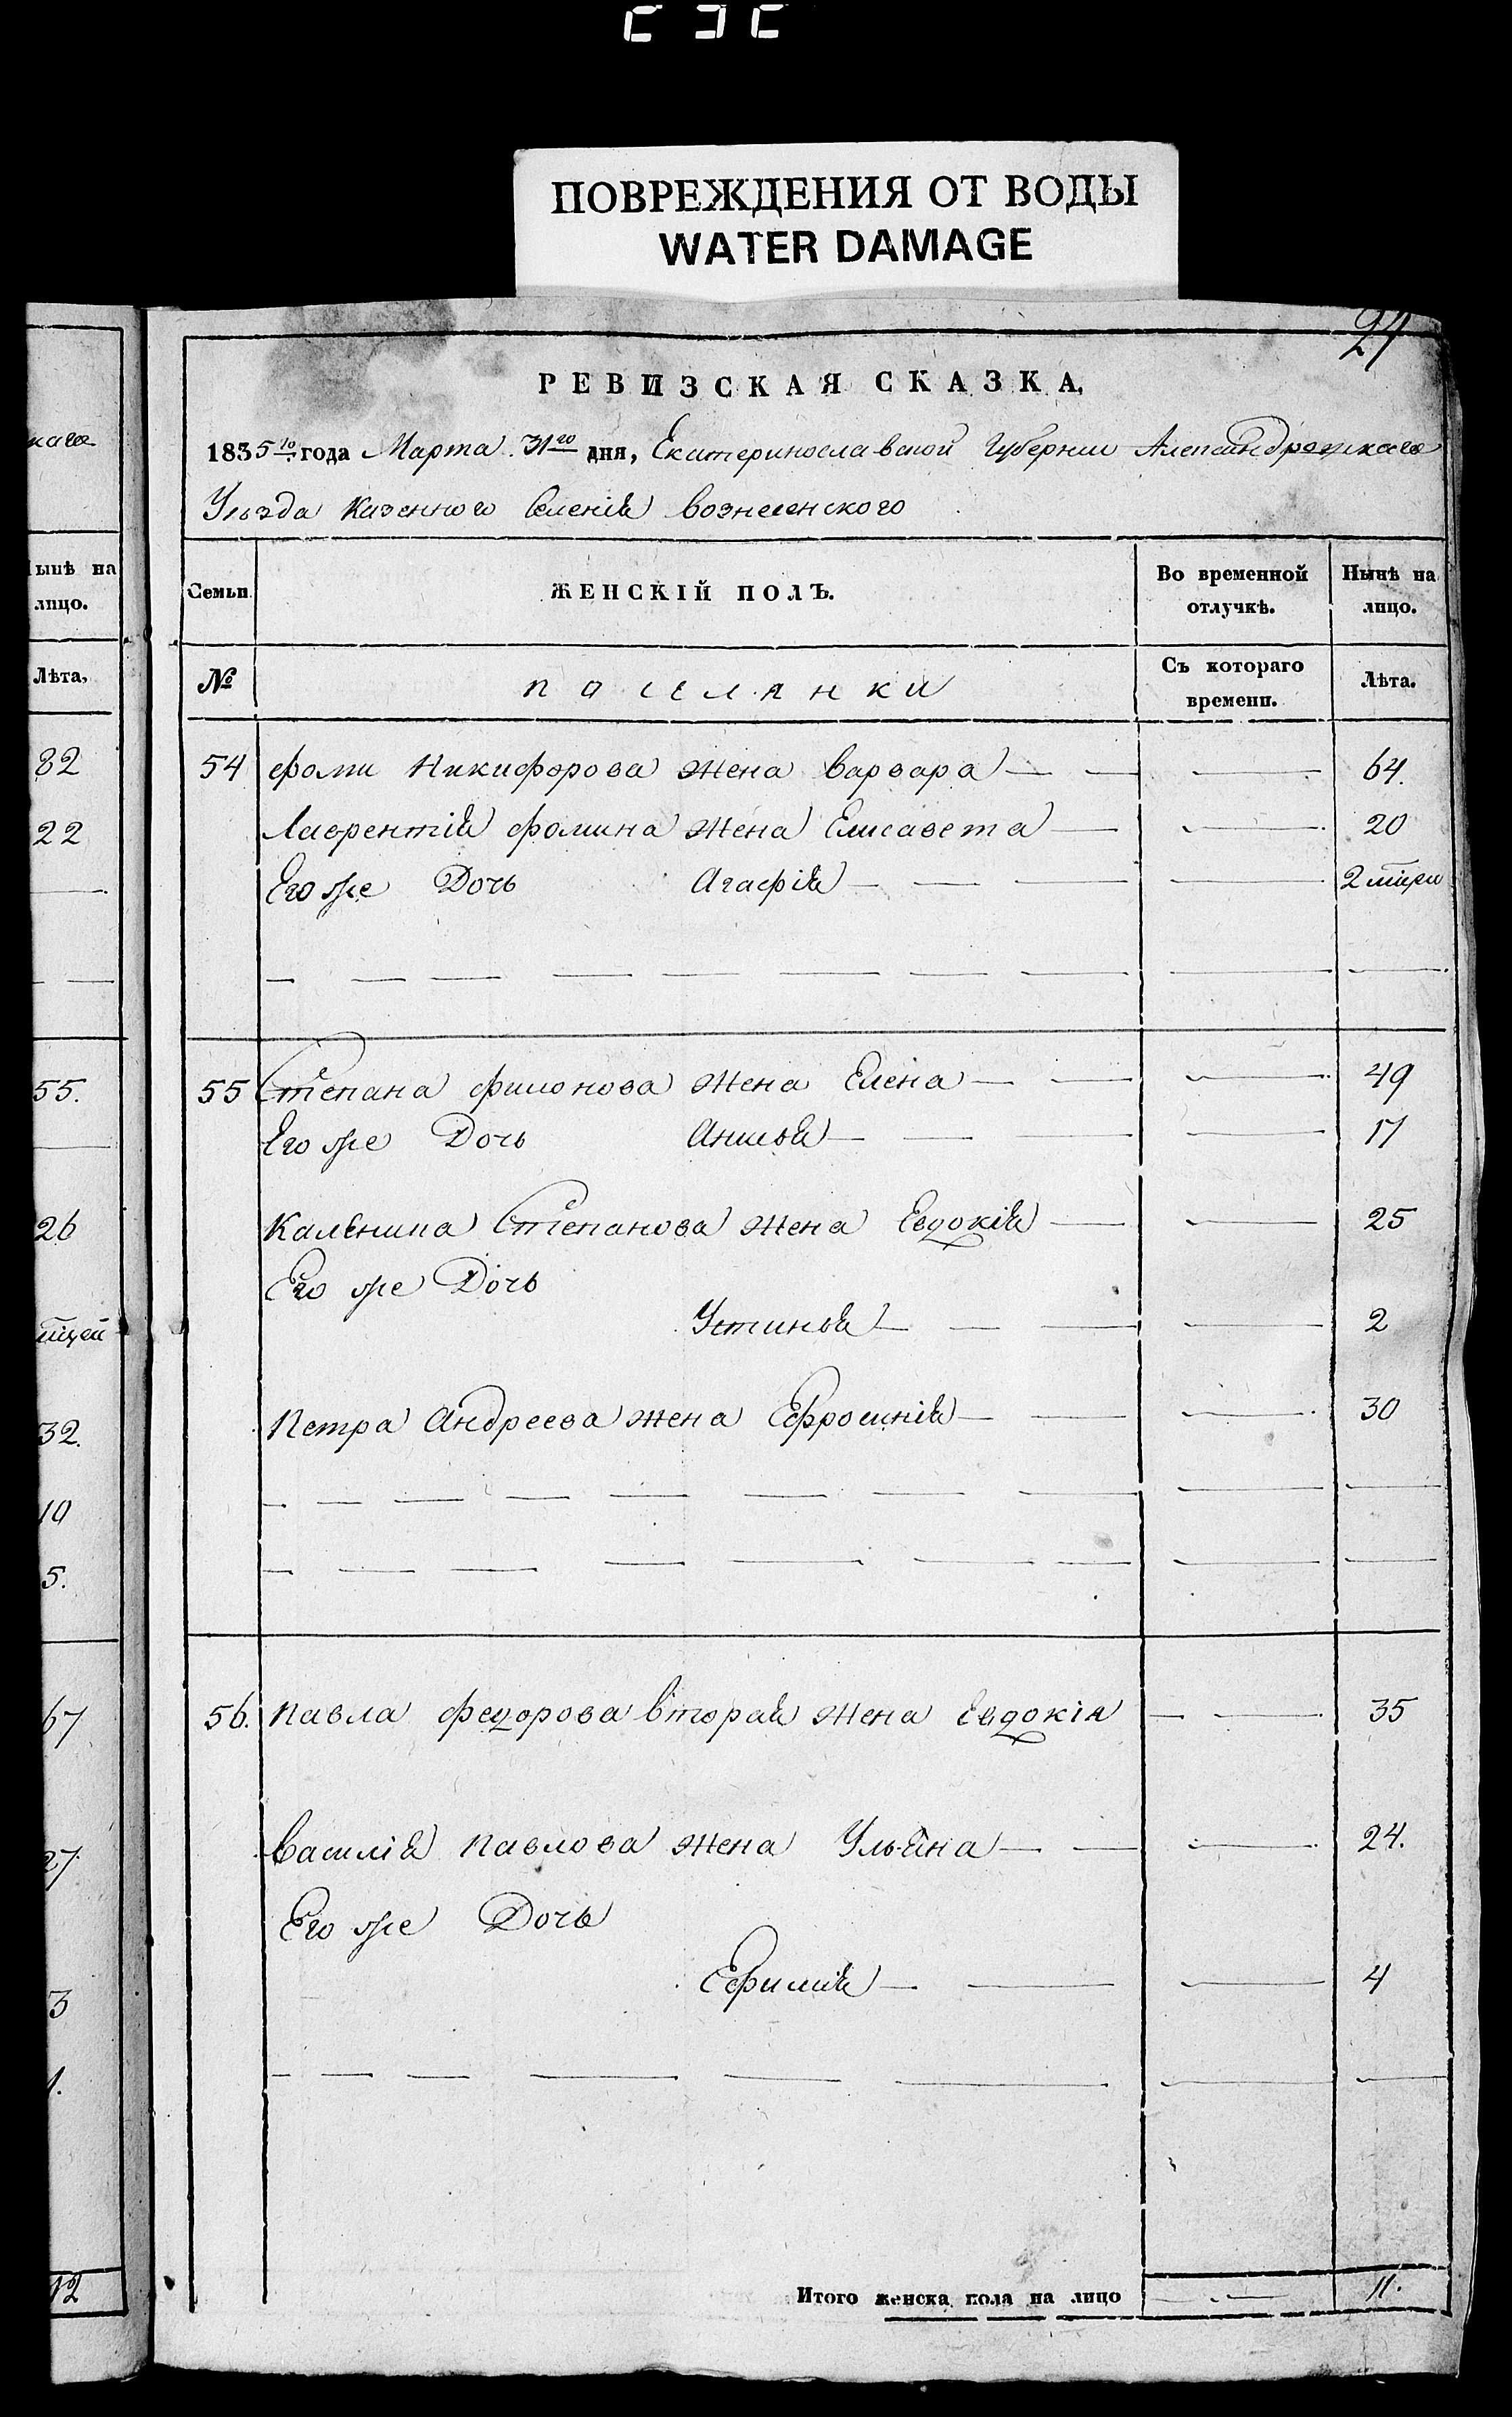 ПОВРЕЖДЕНИЯ ОТ ВОДЫ
WATER DAMAGE
24
РЕВИЗСКАЯ СКАЗКА,
1835го года Марта 31го дня, Екатеринославской Губернии Александровскаго
Уезда Казенного Селенія Вознесенского
Семьи ЖЕНСКІЙ ПОЛЪ. Во временной отлучкѣ. Нынѣ на лицо.
№ поселянки Съ котораго времени. Лѣта.
54 Фоми Никифорова жена Варвара 64.
Лаврентія Фомина жена Елисавета 20
Его же Дочь Агафія 2
55 Степана Филонова жена Елена 49
Его же Дочь Анисья 17
Каленика Степанова жена Евдокія 25
Его же Дочь
Устинья 2
Петра Андреева жена Ефросинія 30
56. Павла Федорова вторая жена Евдокія 35
Василія Павлова жена Ульяна 24.
Его же Дочь
Ефимія 4
Итого женска пола на лицо 11.
каго
ынѣ на
лицо.
Лѣта,
82
22
55.
26
32.
10
5.
67
27
3
1.
12